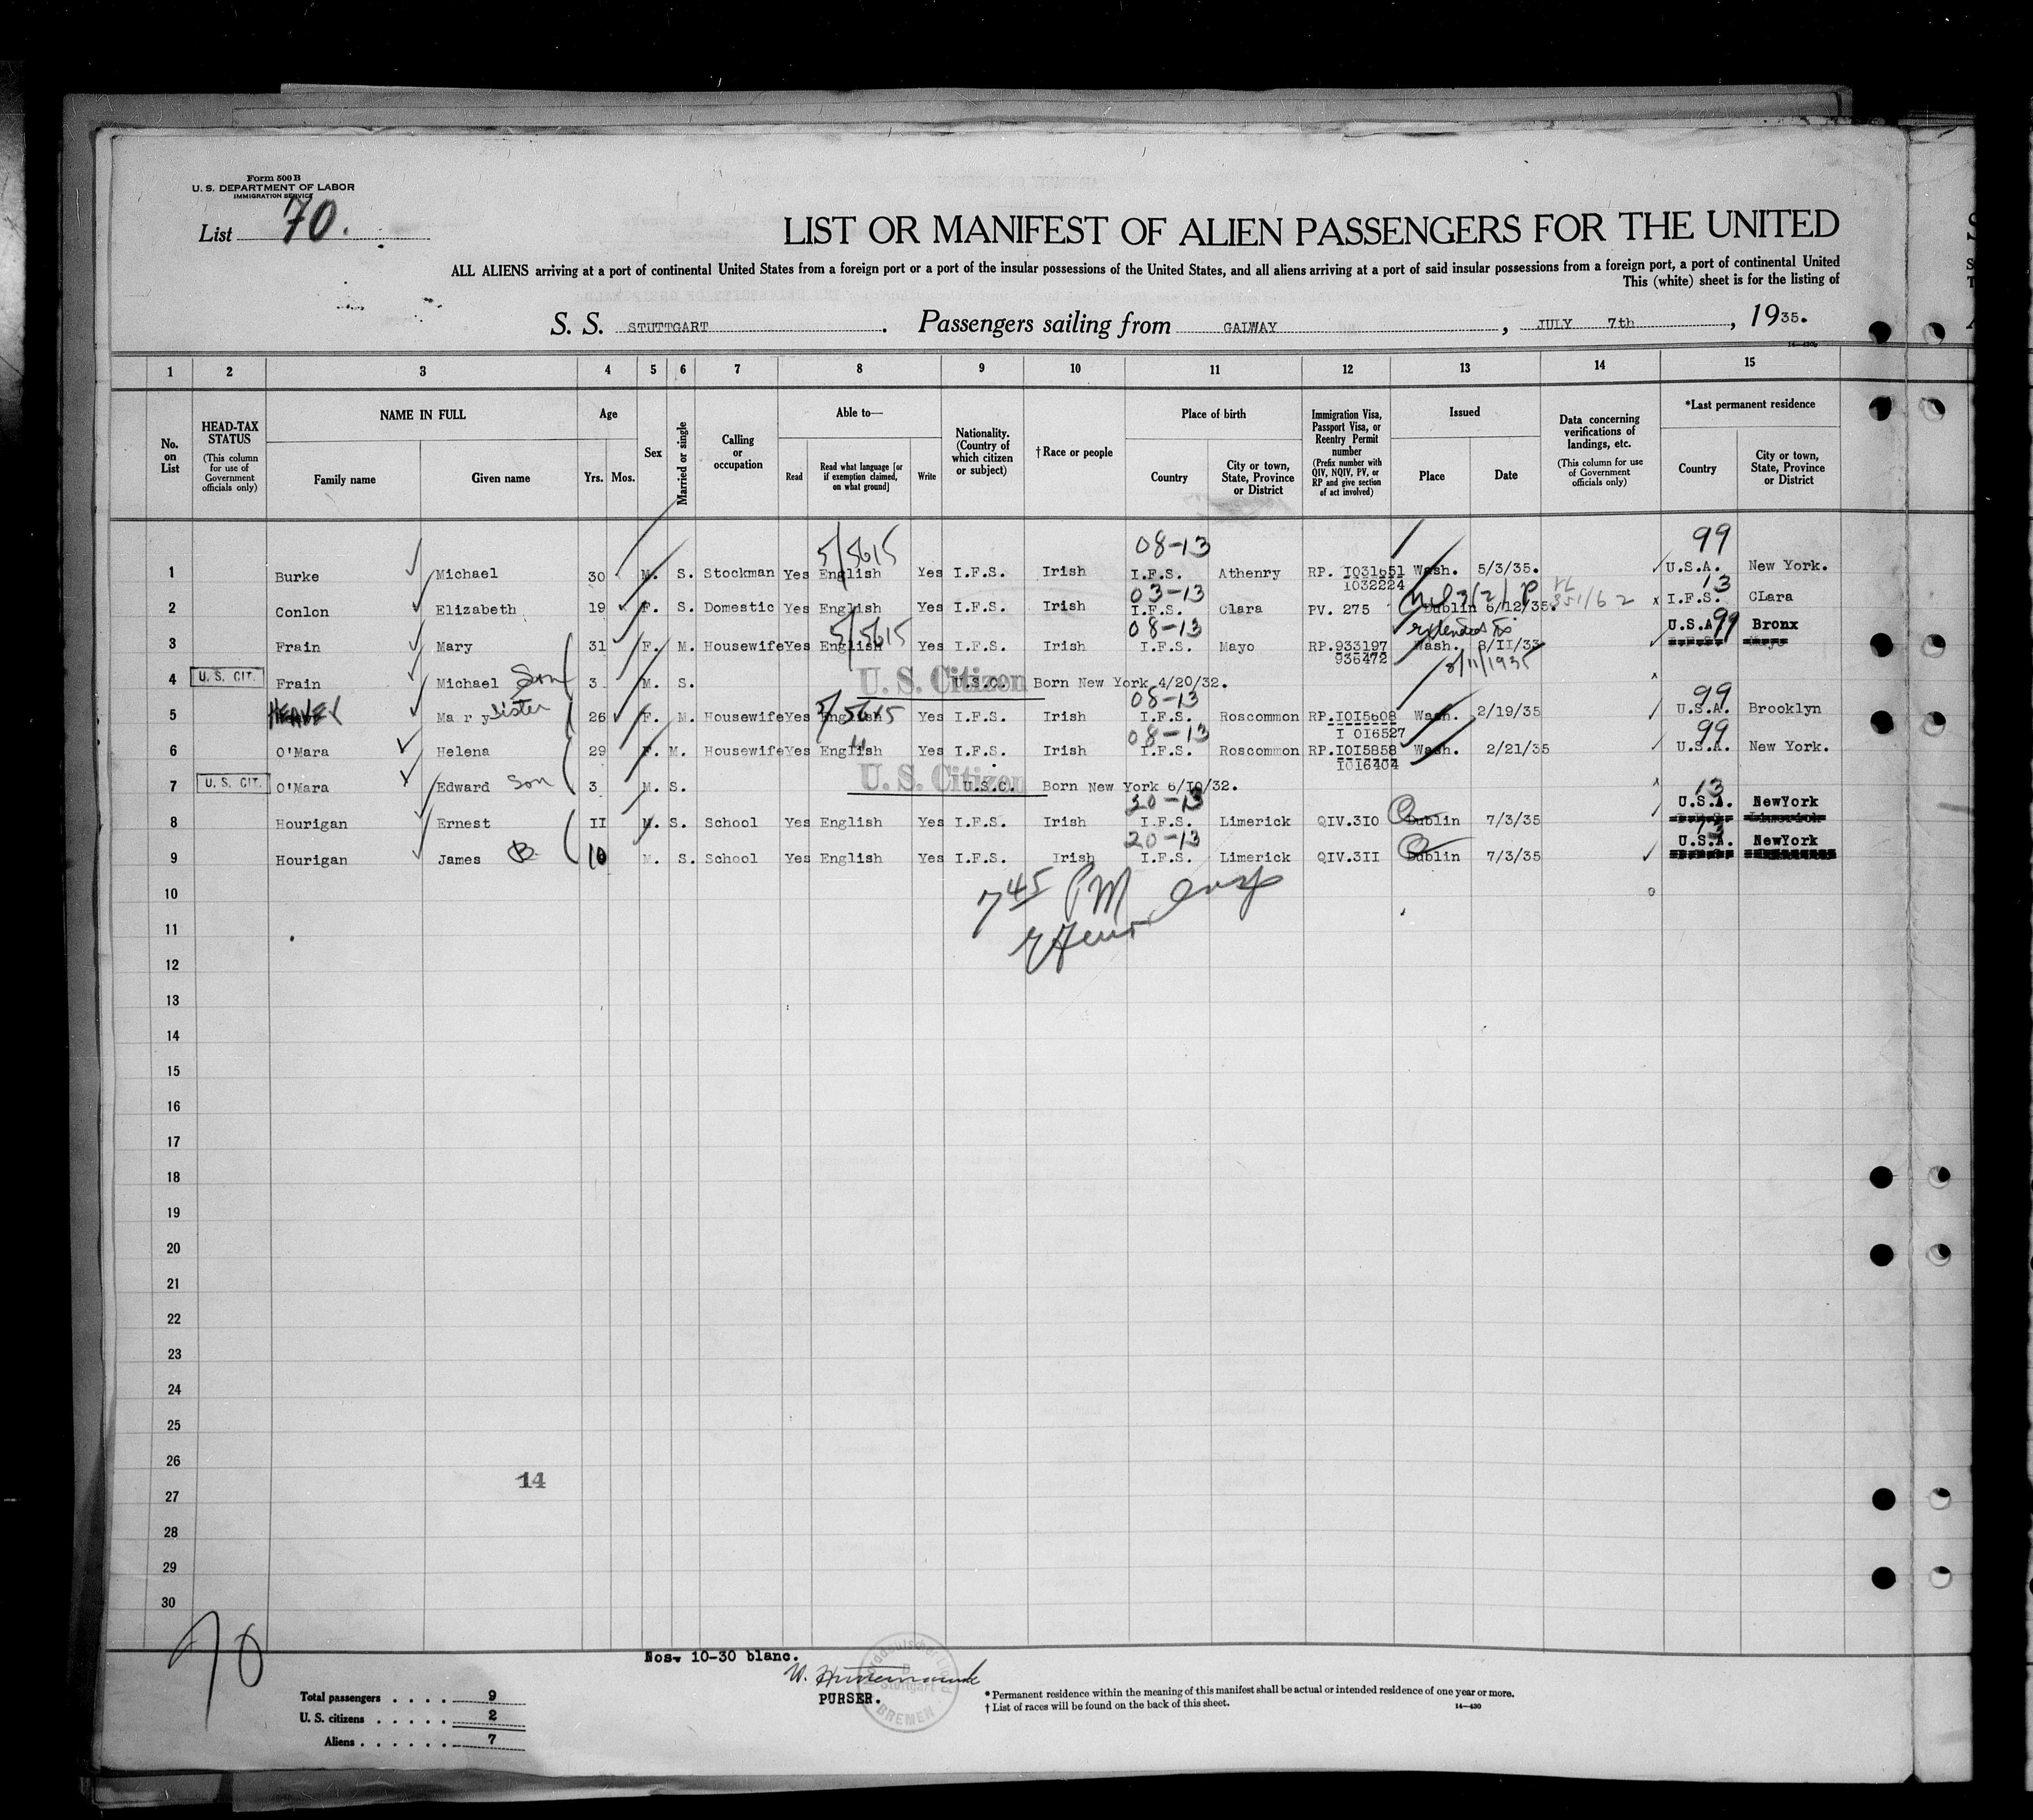 Form 500 B
U. S. DEPARTMENT OF LABOR
IMMIGRATION SERVICE
List 70.
LIST OR MANIFEST OF ALIEN PASSENGERS FOR THE UNITED
ALL ALIENS arriving at a port of continental United States from a foreign port or a port of the insular possessions of the United States, and all aliens arriving at a port of said insular possessions from a foreign port, a port of continental United
This (white) sheet is for the listing of
S. S. STUTTGART . Passengers sailing from GALWAY , JULY 7th , 1935.
1 2 3 4 5 6 7 8 9 10 11 12 13 14 15
No. on List
HEAD-TAX STATUS (This column for use of Government officials only)
NAME IN FULL Family name Given name
Age Yrs. Mos.
Sex
Married or single
Calling or occupation
Able to— Read Read what language [or if exemption claimed, on what ground] Write
Nationality. (Country of which citizen or subject)
† Race or people
Place of birth Country City or town, State, Province or District
Immigration Visa, Passport Visa, or Reentry Permit number (Prefix number with QIV, NQIV, PV, or RP and give section of act involved)
Issued Place Date
Data concerning verifications of landings, etc. (This column for use of Government officials only)
*Last permanent residence Country City or town, State, Province or District
5/5615 08-13 99
1 Burke Michael 30 M. S. Stockman Yes English Yes I.F.S. Irish I.F.S. Athenry RP. I031651 Wash. 5/3/35. U.S.A. New York.
1032224
03-13 13
2 Conlon Elizabeth 19 F. S. Domestic Yes English Yes I.F.S. Irish I.F.S. Clara PV. 275 Dublin 6/12/35. I.F.S. CLara
5/5615 08-13 extended to U.S.A. 99 Bronx
3 Frain Mary 31 F. M. Housewife Yes English Yes I.F.S. Irish I.F.S. Mayo RP.933197 Wash. 8/II/33
936472 8/11/1935
4 U. S. CIT. Frain Michael Son 3 M. S. U. S. Citizen U.S.C. Born New York 4/20/32.
08-13 99
5 HEAVEY Mary Sister 26 F. M. Housewife Yes English 5/5615 Yes I.F.S. Irish I.F.S. Roscommon RP.IOI5608 Wash. 2/19/35 U.S.A. Brooklyn
I 016527
08-13 99
6 O'Mara Helena 29 F. M. Housewife Yes English Yes I.F.S. Irish I.F.S. Roscommon RP.IOI5858 Wash. 2/21/35 U.S.A. New York.
1016404
7 U. S. CIT. O'Mara Edward Son 3 M. S. U. S. Citizen U.S.C. Born New York 6/10/32.
20-13 13 U.S.A. NewYork
8 Hourigan Ernest II M. S. School Yes English Yes I.F.S. Irish I.F.S. Limerick QIV.3IO Dublin 7/3/35
20-13 13 U.S.A. NewYork
9 Hourigan James B 10 M. S. School Yes English Yes I.F.S. Irish I.F.S. Limerick QIV.3II Dublin 7/3/35
10
7 45 PM
11
12
13
14
15
16
17
18
19
20
21
22
23
24
25
26
14
27
28
29
30
70
Nos. 10-30 blanc.
PURSER.
Stuttgart
BREMEN
Total passengers . . . . 9
U. S. citizens . . . . . 2
Aliens . . . . . . 7
* Permanent residence within the meaning of this manifest shall be actual or intended residence of one year or more.
† List of races will be found on the back of this sheet.
14—430